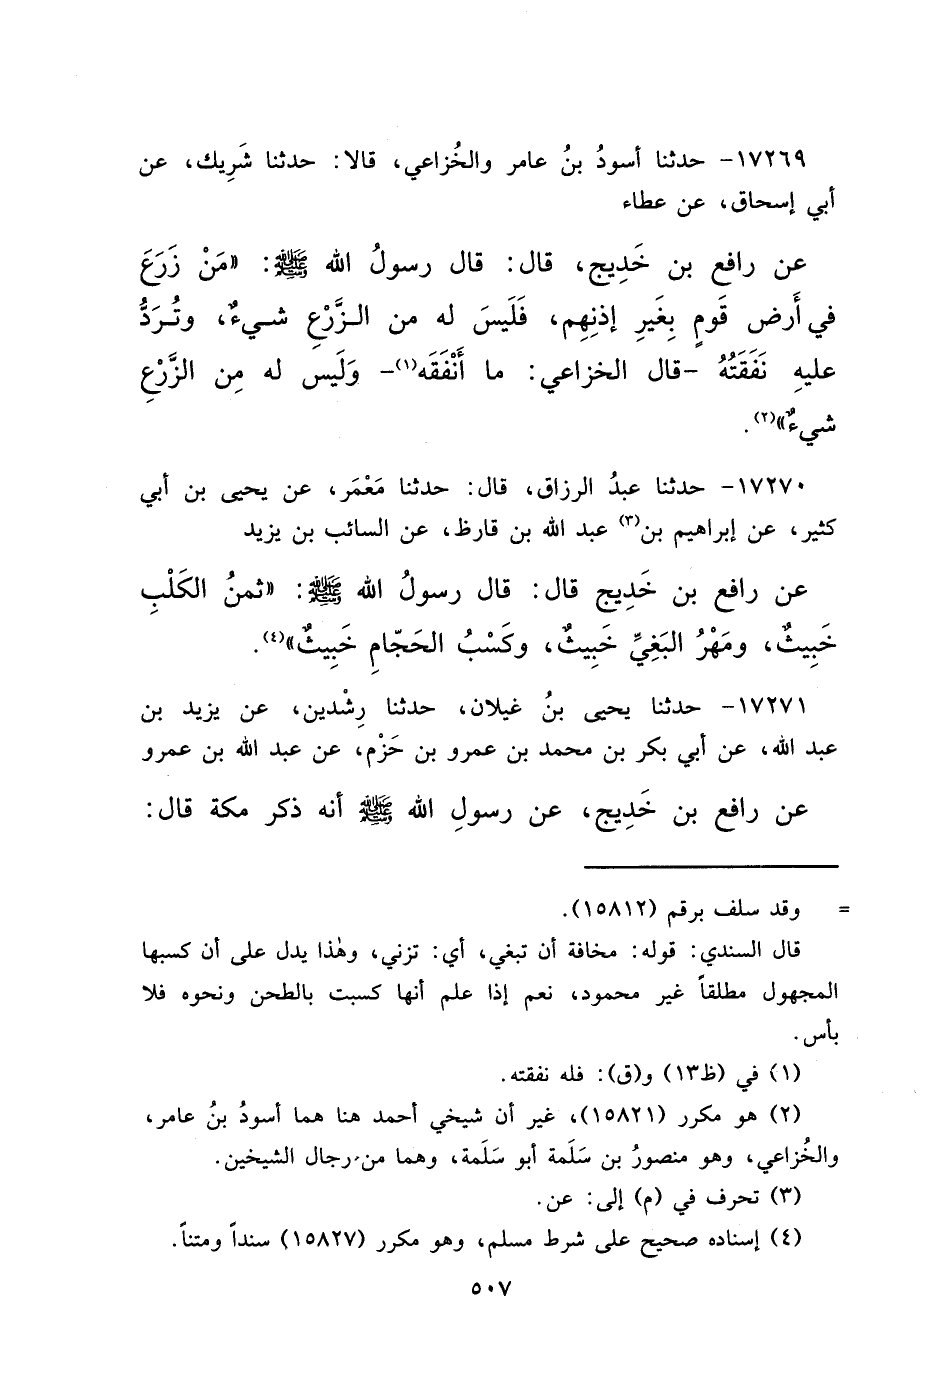 ١٧٢٦٩- حدثنا أسودُ بنُ عامر والخُزاعي، قالا: حدثنا شَرِيك، عن
أبي إسحاق، عن عطاء
عن رافع بن خَدِيج، قال: قال رسولُ الله ﷺ: «مَنْ زَرَعَ
في أَرض قَومٍ بِغَيرِ إذنِهِم، فَلَيسَ له من الـزَّرْعِ شـيءٌ، وتُـرَدُّ
عليهِ نَفَقَتُهُ -قال الخزاعي: ما أَنْفَقَه(١)- وَلَيس له مِن الزَّرْعِ
شيءٌ»(٢).
١٧٢٧٠- حدثنا عبدُ الرزاق، قال: حدثنا مَعْمَر، عن يحيى بن أبي
كثير، عن إبراهيم بن(٣) عبد الله بن قارظ، عن السائب بن يزيد
عن رافع بن خَدِيج قال: قال رسولُ الله ﷺ: «ثمنُ الكَلْبِ
خَبِيثٌ، ومَهْرُ البَغِيِّ خَبِيثٌ، وكَسْبُ الحَجّامِ خَبِيثٌ»(٤).
١٧٢٧١- حدثنا يحيى بنُ غيلان، حدثنا رِشْدين، عن يزيد بن
عبد الله، عن أبي بكر بن محمد بن عمرو بن حَزْم، عن عبد الله بن عمرو
عن رافع بن خَدِيج، عن رسولِ الله ﷺ أنه ذكر مكة قال:
= وقد سلف برقم (١٥٨١٢).
قال السندي: قوله: مخافة أن تبغي، أي: تزني، وهٰذا يدل على أن كسبها
المجهول مطلقاً غير محمود، نعم إذا علم أنها كسبت بالطحن ونحوه فلا
بأس.
(١) في (ظ١٣) و(ق): فله نفقته.
(٢) هو مكرر (١٥٨٢١)، غير أن شيخي أحمد هنا هما أسودُ بنُ عامر،
والخُزاعي، وهو منصورُ بن سَلَمة أبو سَلَمة، وهما من رجال الشيخين.
(٣) تحرف في (م) إلى: عن.
(٤) إسناده صحيح على شرط مسلم، وهو مكرر (١٥٨٢٧) سنداً ومتناً.
٥٠٧